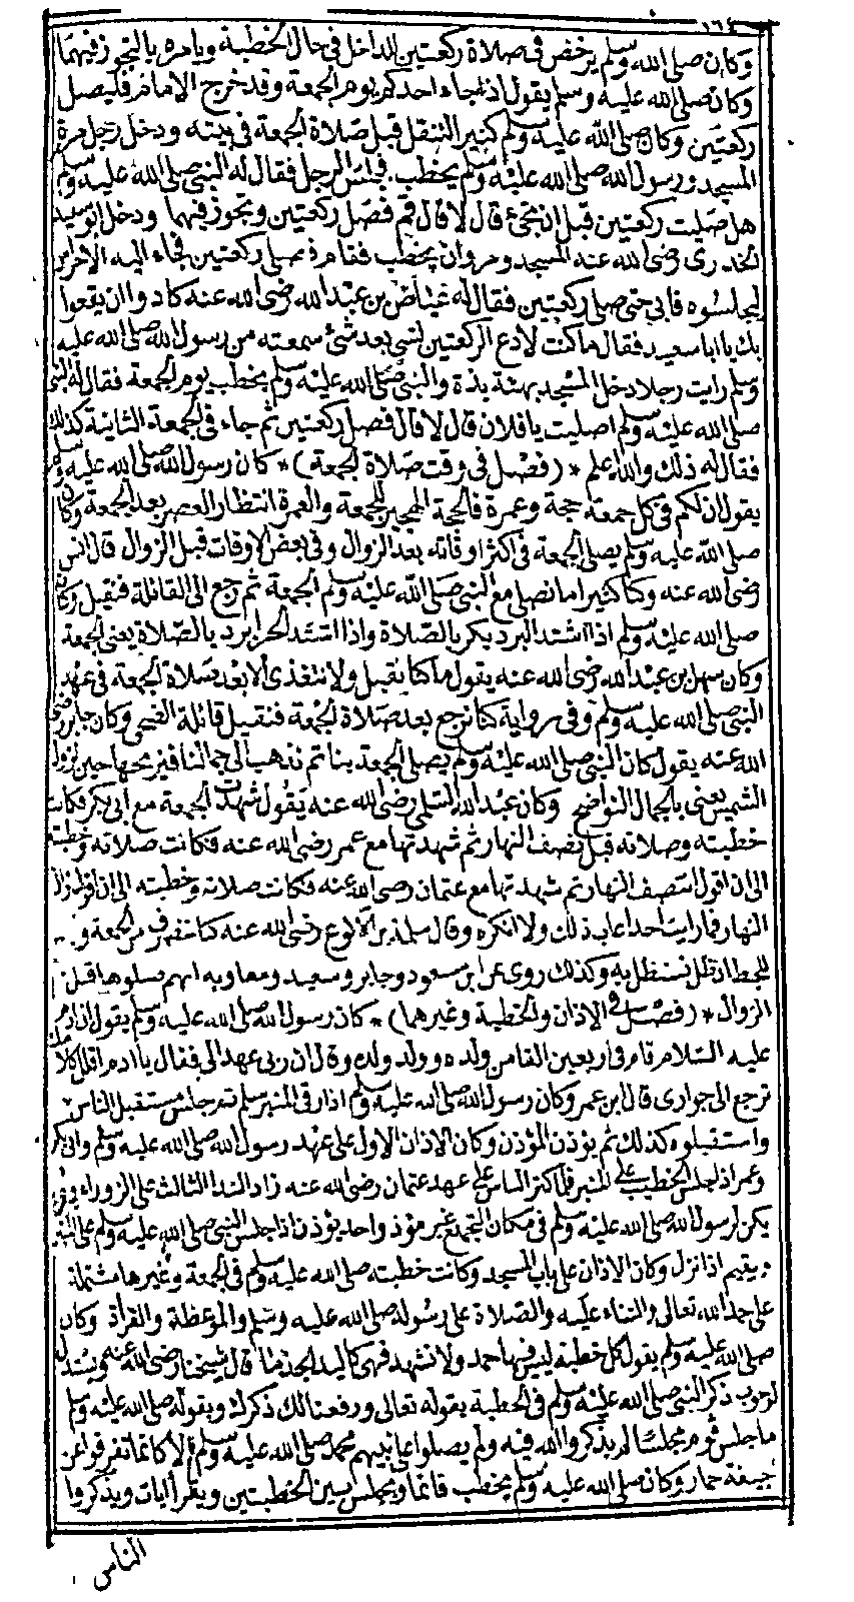 ١٦٤
وكان صلى الله عليه وسلم يرخص في صلاة ركعتين للداخل في حال الخطبة ويامره بالتجوز فيهما
وكان صلى الله عليه وسلم يقول اذا جاء احدكم يوم الجمعة وقد خرج الامام فليصل
ركعتين وكان صلى الله عليه وسلم كثير التنفل قبل صلاة الجمعة في بيته ودخل رجل مرة
المسجد ورسول الله صلى الله عليه وسلم يخطب فجلس الرجل فقال له النبي صلى الله عليه وسلم
هل صليت ركعتين قبل ان تجئ قال لا قال قم فصل ركعتين وتجوز فيهما ودخل ابو سعيد
الخدرى رضى الله عنه المسجد ومروان يخطب فقام فصلى ركعتين فجاء اليه الاحراس
ليجلسوه فابى حتى صلى ركعتين فقال له عياض بن عبد الله رضى الله عنه كادوا ان يقعوا
بك يا ابا سعيد فقال ما كنت لادع الركعتين لشئ بعد شئ سمعته من رسول الله صلى الله عليه
وسلم رايت رجلا دخل المسجد بهيئة بذة والنبي صلى الله عليه وسلم يخطب يوم الجمعة فقال له النبي
صلى الله عليه وسلم اصليت يا فلان قال لا قال فصل ركعتين ثم جاء في الجمعة الثانية كذلك
فقال له ذلك والله اعلم * (فصل في وقت صلاة الجمعة) * كان رسول الله صلى الله عليه وسلم
يقول ان لكم في كل جمعة حجة وعمرة فالحجة الهجير للجمعة والعمرة انتظار العصر بعد الجمعة وكان
صلى الله عليه وسلم يصلي الجمعة في اكثر اوقاته بعد الزوال وفي بعض الاوقات قبل الزوال قال انس
رضى الله عنه وكنا كثيرا ما نصلي مع النبي صلى الله عليه وسلم الجمعة ثم نرجع الى القائلة فنقيل وكان
صلى الله عليه وسلم اذا اشتد البرد بكر بالصلاة واذا اشتد الحر ابرد بالصلاة يعني الجمعة
وكان سهل بن عبد الله رضى الله عنه يقول ما كنا نقيل ولا نتغذى الا بعد صلاة الجمعة في عهد
النبي صلى الله عليه وسلم وفي رواية كنا نرجع بعد صلاة الجمعة فنقيل قائلة الضحى وكان جابر رضى
الله عنه يقول كان النبي صلى الله عليه وسلم يصلي الجمعة بنا ثم نذهب الى جمالنا فنريحها حين تزول
الشمس يعني بالجمال النواضح وكان عبد الله السلمي رضى الله عنه يقول شهدت الجمعة مع ابى بكر فكانت
خطبته وصلاته قبل نصف النهار ثم شهدتها مع عمر رضى الله عنه فكانت صلاته وخطبته
الى ان اقول انتصف النهار ثم شهدتها مع عثمان رضى الله عنه فكانت صلاته وخطبته الى ان اقول زال
النهار فما رايت احدا عاب ذلك ولا انكره وقال سلمة بن الاكوع رضى الله عنه كنا ننصرف من الجمعة و
للحيطان ظل نستظل به وكذلك روى عن ابن مسعود وجابر وسعيد ومعاوية انهم صلوها قبل
الزوال * (فصل في الاذان والخطبة وغيرهما) * كان رسول الله صلى الله عليه وسلم يقول ان ادم
عليه السلام قام في اربعين الفا من ولده وولد ولده وقال ان ربى عهد الى فقال يا ادم اقلل كلامك
ترجع الى جوارى قال ابن عمر وكان رسول الله صلى الله عليه وسلم اذا رقى المنبر سلم ثم جلس مستقبل الناس
واستقبلوه كذلك ثم يؤذن المؤذن وكان الاذان الاول على عهد رسول الله صلى الله عليه وسلم وابى بكر
وعمر اذا جلس الخطيب على المنبر فلما كثر الناس على عهد عثمان رضى الله عنه زاد الندا الثالث على الزوراء ولم
يكن لرسول الله صلى الله عليه وسلم في مكان التجمع غير مؤذن واحد يؤذن اذا جلس النبي صلى الله عليه وسلم على المنبر
ويقيم اذا نزل وكان الاذان على باب المسجد وكانت خطبته صلى الله عليه وسلم في الجمعة وغيرها مشتملة
على حمد الله تعالى والثناء عليه والصلاة على رسوله صلى الله عليه وسلم والموعظة والقراة وكان
صلى الله عليه وسلم يقول كل خطبة ليس فيها حمد ولا تشهد فهى كاليد الجذما قال شيخنا رضى الله عنه ويستدل
لوجوب ذكر النبي صلى الله عليه وسلم في الخطبة بقوله تعالى ورفعنا لك ذكرك وبقوله صلى الله عليه وسلم
ما جلس قوم مجلسا لم يذكروا الله فيه ولم يصلوا على نبيهم محمد صلى الله عليه وسلم الا كانما تفرقوا عن
جيفة حمار وكان صلى الله عليه وسلم يخطب قائما ويجلس بين الخطبتين ويقرأ ايات ويذكروا
الناس